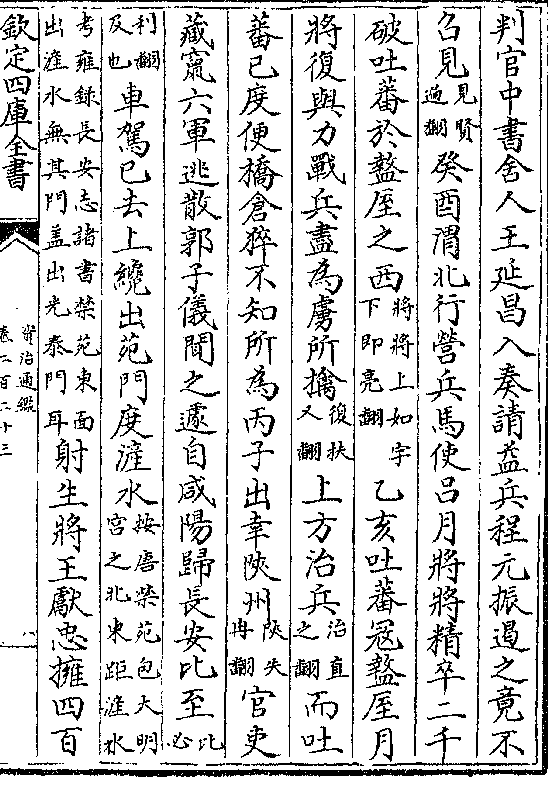 判官中書舍人王延昌入奏請益兵程元振遏之竟不
召見見賢遍翻癸酉渭北行營兵馬使吕月將將精卒二千
破吐蕃於盩厔之西將將上如字下即亮翻乙亥吐蕃寇盩厔月
將復與力戰兵盡為虜所擒復扶又翻上方治兵治直之翻而吐
蕃已度便橋倉猝不知所為丙子出幸陝州陝失冉翻官吏
藏竄六軍逃散郭子儀聞之遽自咸陽歸長安比至比必
利翻及也車駕已去上纔出苑門度滻水按唐禁苑包大明宫之北東距滻水
考雍録長安志諸書禁苑東面出滻水無其門盖出光泰門耳射生將王獻忠擁四百
欽定四庫全書
資治通鑑
卷二百二十三
八